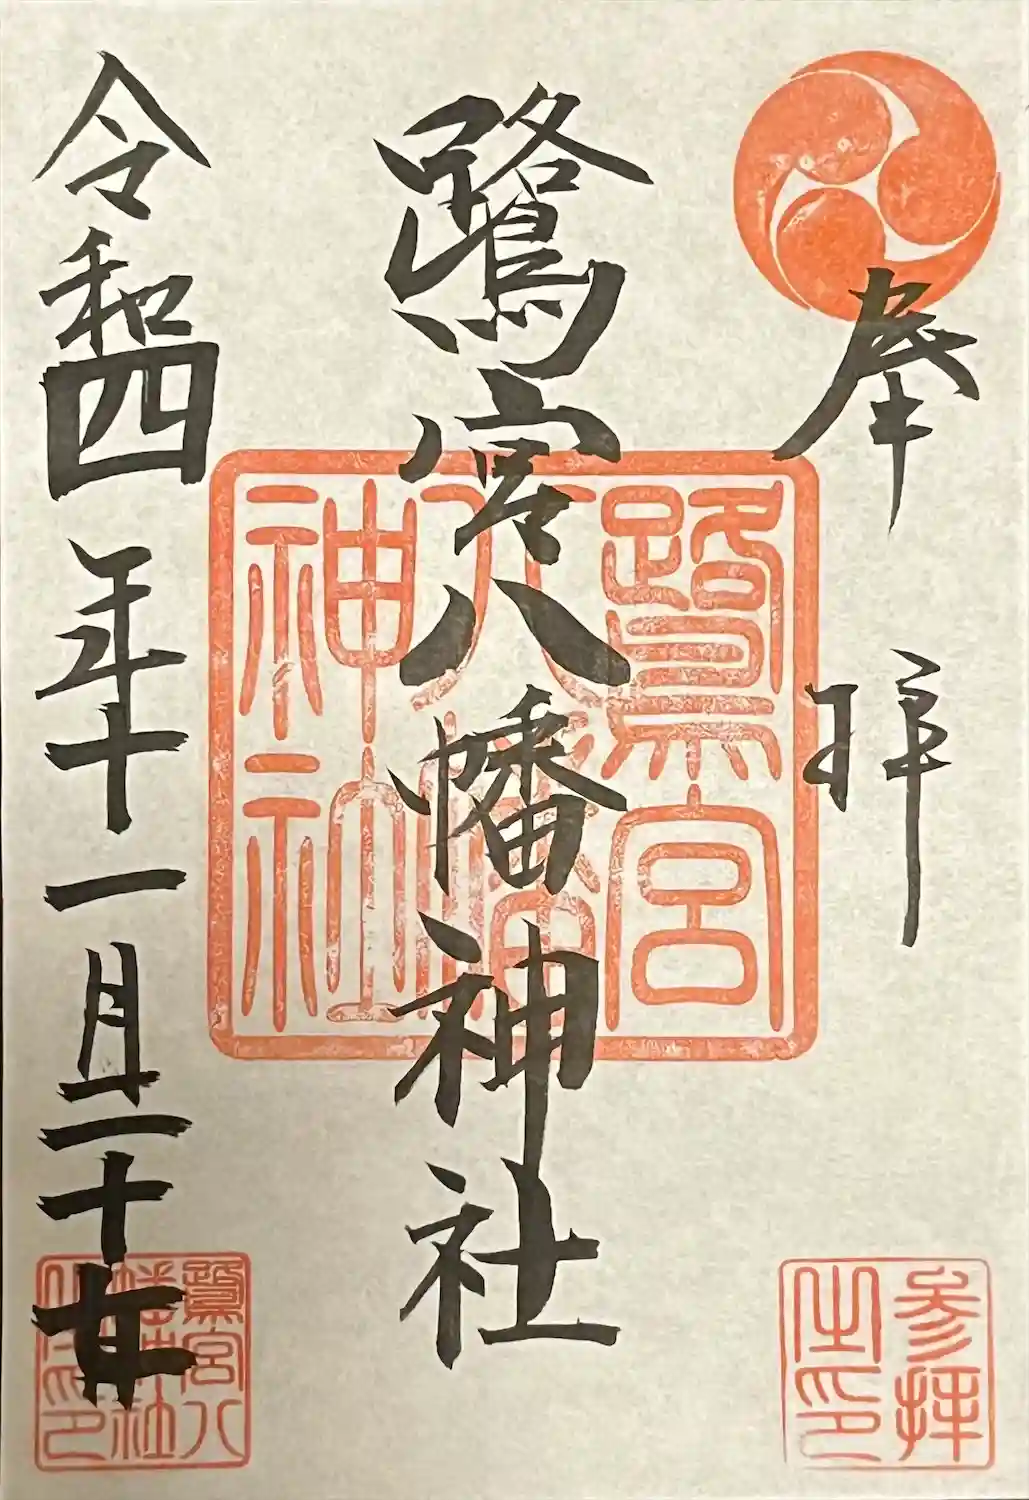 奉拝
参拝之印
鷺宮八幡神社
鷺宮八幡神社
令和四年十一月二十
鷺宮八幡神社之印